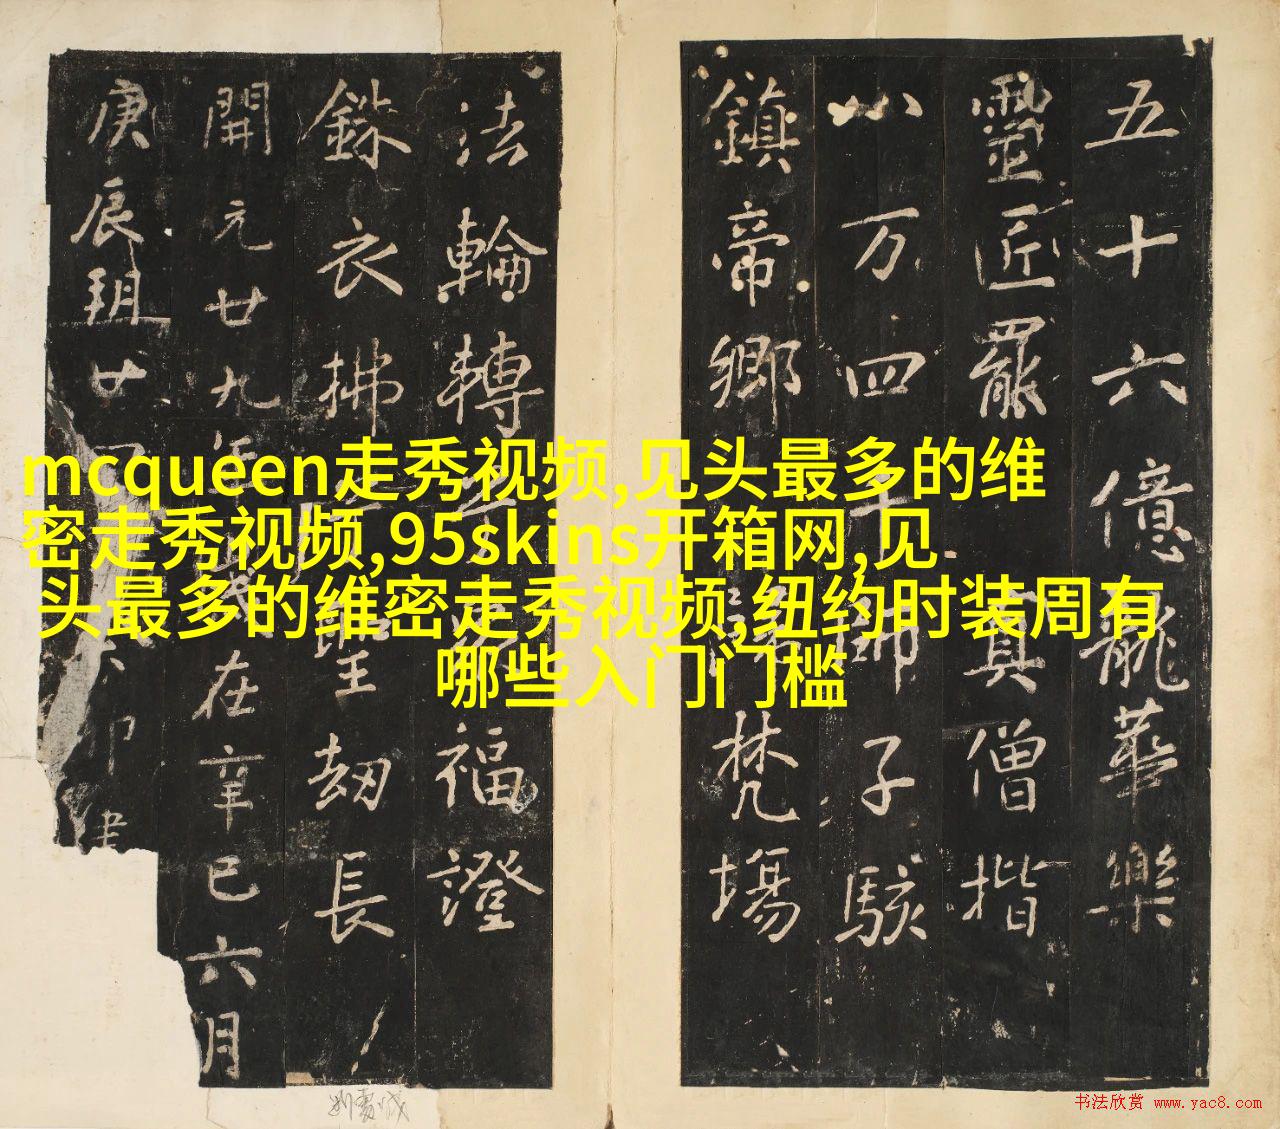 五十六億龍華樂
靈匠罷真僧揩
八万四千師子駭
鎮帝鄉梵場
法輪轉福澄
銖衣拂聖劫長
開元廿九年在辛巳六月
庚辰廿
mcqueen走秀视频,见头最多的维
密走秀视频,95skins开箱网,见
头最多的维密走秀视频,纽约时装周有
哪些入门门槛
书法欣赏 www.yac8.com